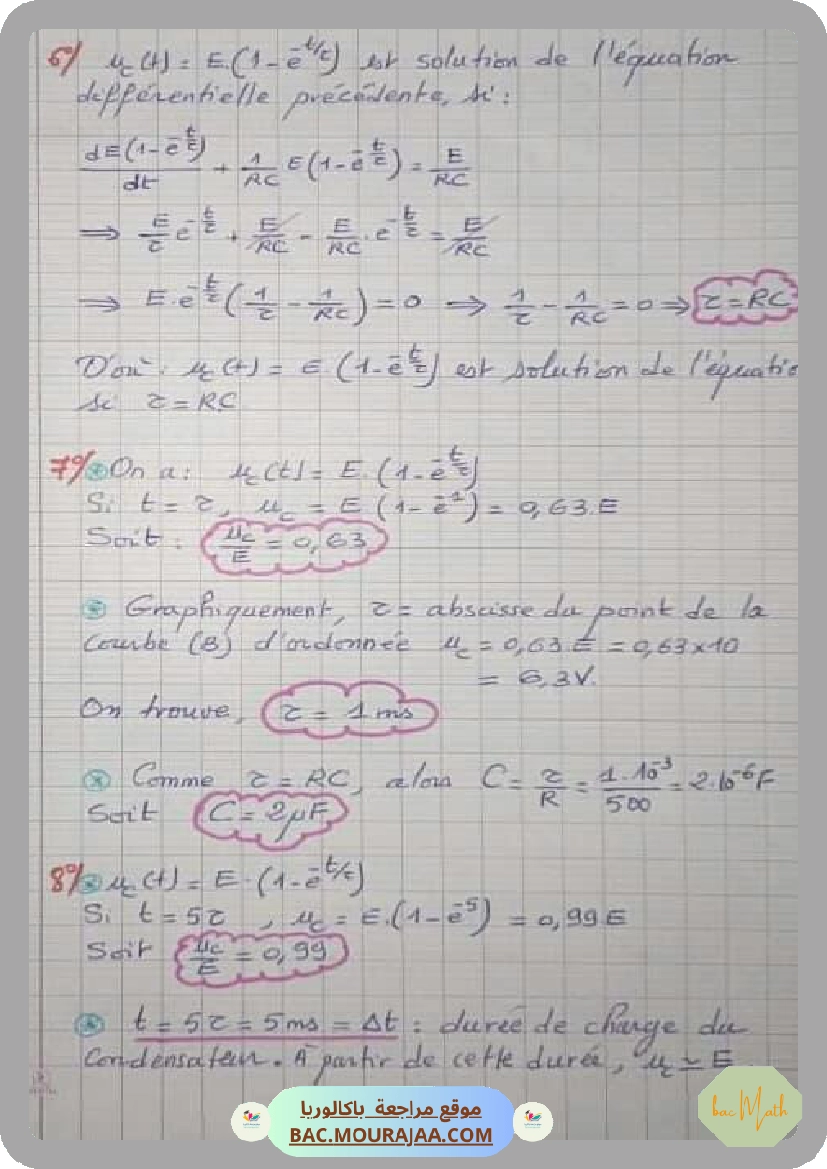 6°/ uc(t) = E.(1-e^-t/τ) est solution de l'équation
différentielle précédente, si :
dE(1-e^-t/τ)/dt + 1/RC E(1-e^-t/τ) = E/RC
⇒ E/τ e^-t/τ + E/RC - E/RC . e^-t/τ = E/RC
⇒ E.e^-t/τ (1/τ - 1/RC) = 0 ⇒ 1/τ - 1/RC = 0 ⇒ τ = RC
D'où . uc(t) = E.(1-e^-t/τ) est solution de l'équatio
si τ = RC
7°/ * On a : uc(t) = E.(1-e^-t/τ)
Si t = τ, uc = E (1-e^-1) = 0,63.E
Soit : uc/E = 0,63
* Graphiquement, τ = abscisse du point de la
courbe (B) d'ordonnée uc = 0,63 E = 0,63×10
= 6,3V.
On trouve, τ = 1 ms
* Comme τ = RC, alors C = τ/R = 1.10^-3/500 = 2.10^-6 F
Soit C = 2µF
8°/ * uc(t) = E.(1-e^-t/τ)
Si t = 5τ , uc = E.(1-e^-5) = 0,99 E
Soit uc/E = 0,99
* t = 5τ = 5 ms = Δt : durée de charge du
Condensateur. A partir de cette durée, uc ≃ E
موقع مراجعة باكالوريا
BAC.MOURAJAA.COM
bac Math